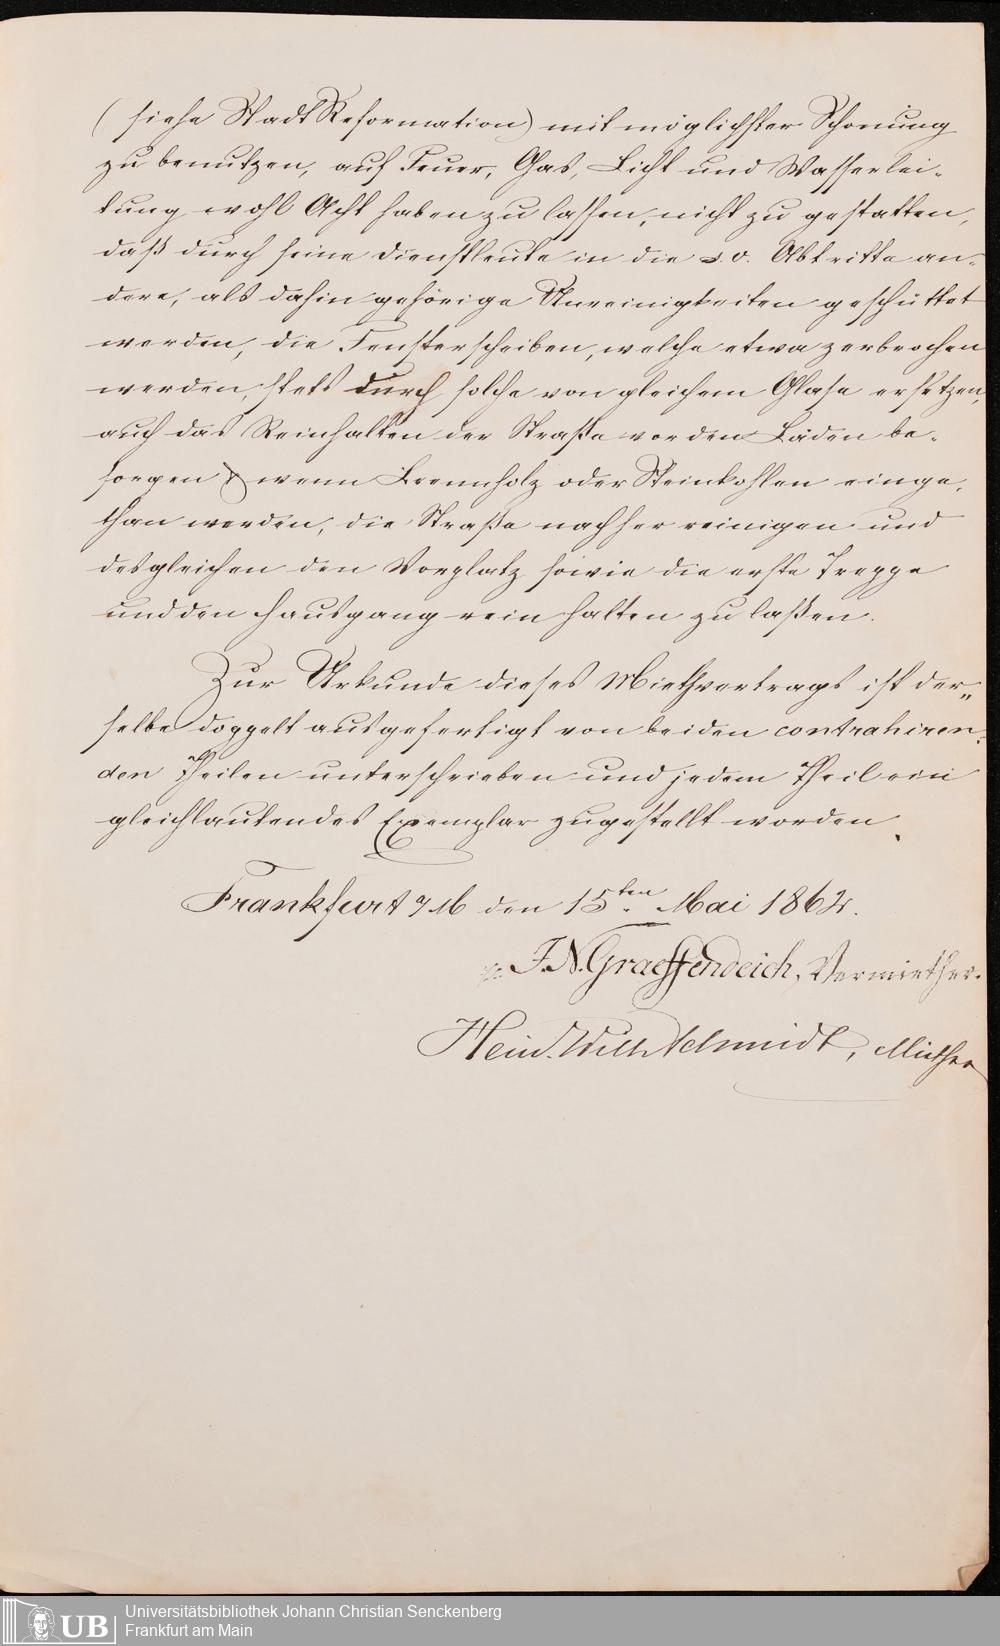 (siehe Stadt Reformation) mit möglichster Schonung
zu benutzen, auf Feuer, Gas, Licht und Wasserlei-
tung wohl Acht haben zu lassen, nicht zu gestatten,
daß durch seine Dienstleute in die s. v. Abtritte an-
dere, als dahin gehörige Unreinigkeiten geschüttet
werden, die Fensterscheiben, welche etwa zerbrochen
werden, stets durch solche von gleichem Glase ersetzen,
auch das Reinhalten der Straße vor den Läden be-
sorgen & wenn Brennholz oder Steinkohlen einge-
than werden, die Straße nachher reinigen und
desgleichen den Vorplatz sowie die erste Treppe
und den Hausgang rein halten zu laßen.
Zur Urkunde dieses Miethvertrags ist der-
selbe doppelt ausgefertigt von beiden contrahiren-
den Theilen unterschrieben und jedem Theil ein
gleichlautendes Exemplar zugestellt worden.
Frankfurt a/M den 15ten Mai 1862.
J. N. Graeffendeich, Vermiether.
Heinr. Wilh. Schmidt, Miether
UB
Universitätsbibliothek Johann Christian Senckenberg
Frankfurt am Main